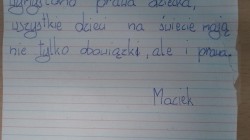 wymyślono prawa dziecka,
wszystkie dzieci na świecie mają
nie tylko obowiązki, ale i prawa.
Maciek